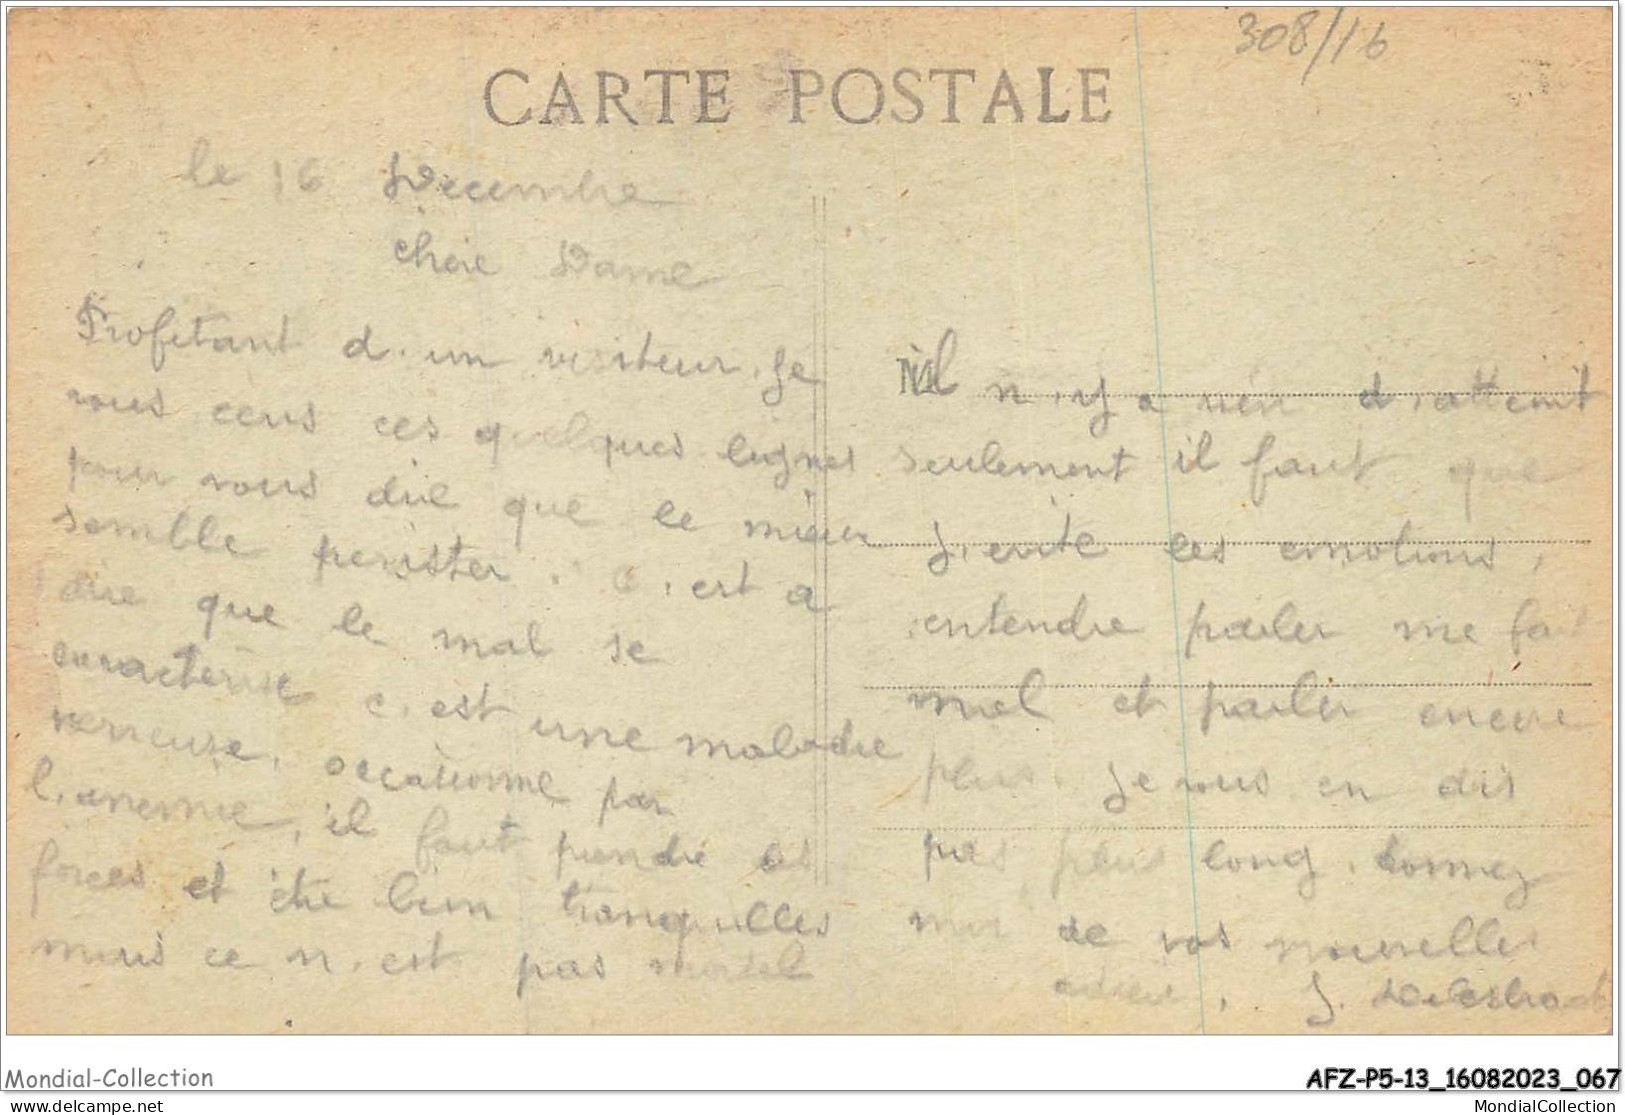 308/16
CARTE POSTALE
le 16 Decembre
chere Dame
Profitant d'un visiteur, je
vous ecris ces quelques lignes
pour vous dire que le mieux
semble persister. C'est a
dire que le mal se
caracterise c'est une maladie
nerveuse, occasionne par
l'anemie, il faut prendre des
forces et être bien tranquilles
mais ce n'est pas mortel
il n'y a rien d'atteint
seulement il faut que
j'evite les emotions,
entendre parler me fait
mal et parler encore
plus. Je vous en dis
pas plus long. donnez
moi de vos nouvelles
adieu, J.
Mondial-Collection
AFZ-P5-13_16082023_067
delcampe.net
MondialCollection